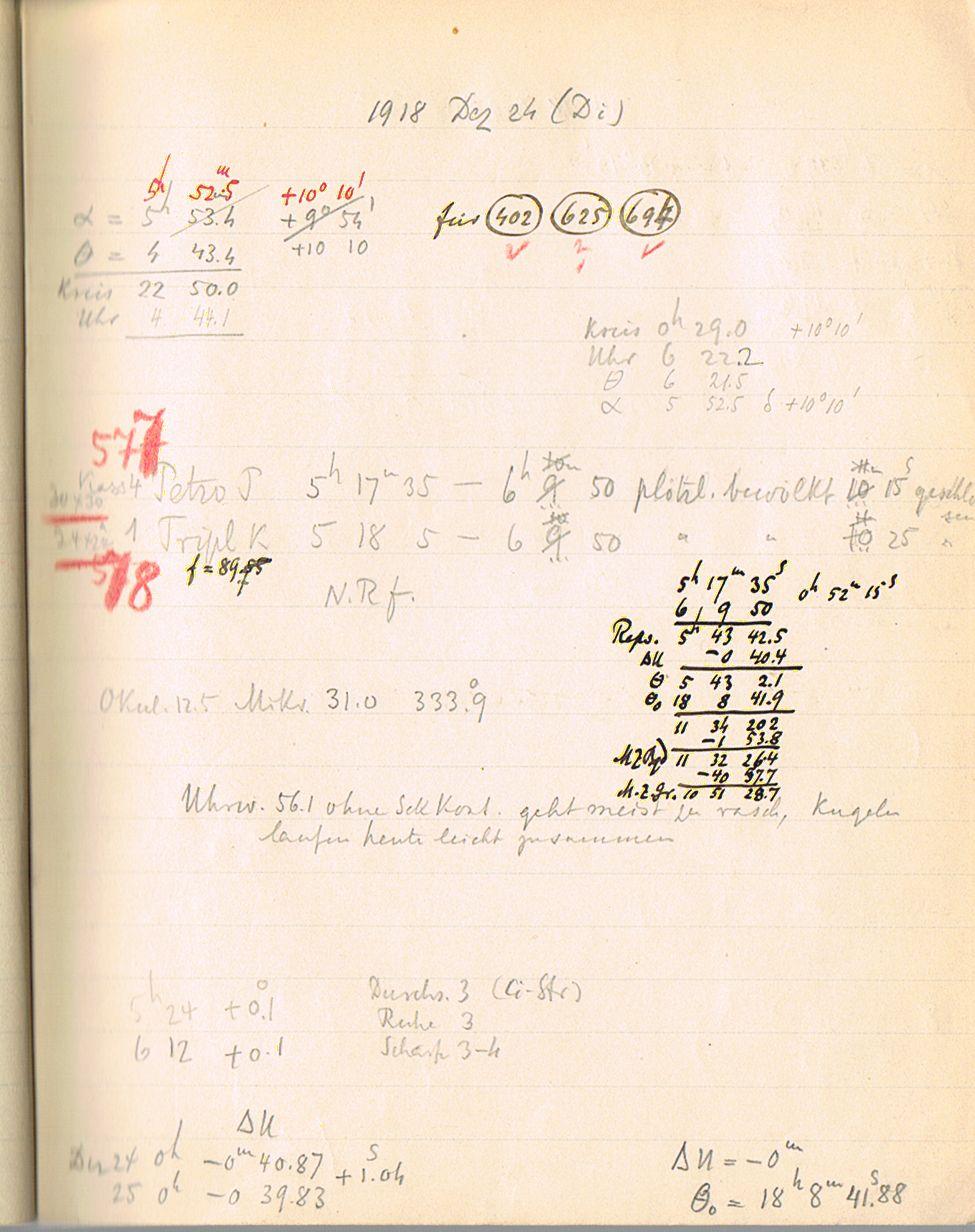 1918 Dez 24 (Di)
5h 52m.5 +10° 10'
α = 5h 53.4 +9° 54'
für 402 625 694
θ = 4 43.4 +10 10
Kreis 22 50.0
Uhr 4 44.1
Kreis 0h 29.0 +10°10'
Uhr 6 22.2
θ 6 21.5
α 5 52.5 δ +10°10'
577
Petro P 5h 17m 35 — 6h 9 50 plötzl. bewölkt 10 15s geschlossen
1 Tripl K 5 18 5 — 6 9 50 " " 10 25 "
578
f = 89.85
N.R f.
5h 17m 35s 0h 52m 15s
6 9 50
Reps. 5h 43 42.5
ΔU -0 40.4
θ 5 43 2.1
θ0 18 8 41.9
11 34 20.2
-1 53.8
11 32 26.4
-40 57.7
M.Z.Gr. 10 51 28.7
Okul. 12.5 Mikr. 31.0 333°.9
Uhrw. 56.1 ohne SekKont. geht meist zu rasch, Kugeln
laufen heute leicht zusammen
5h 24 +0°.1
6 12 +0.1
Durchs. 3 (Ci-Str)
Ruhe 3
Schärfe 3-4
ΔU
Dez 24 0h -0m 40.87
25 0h -0 39.83
+1.04s
ΔU = -0m
θ0 = 18h 8m 41s.88